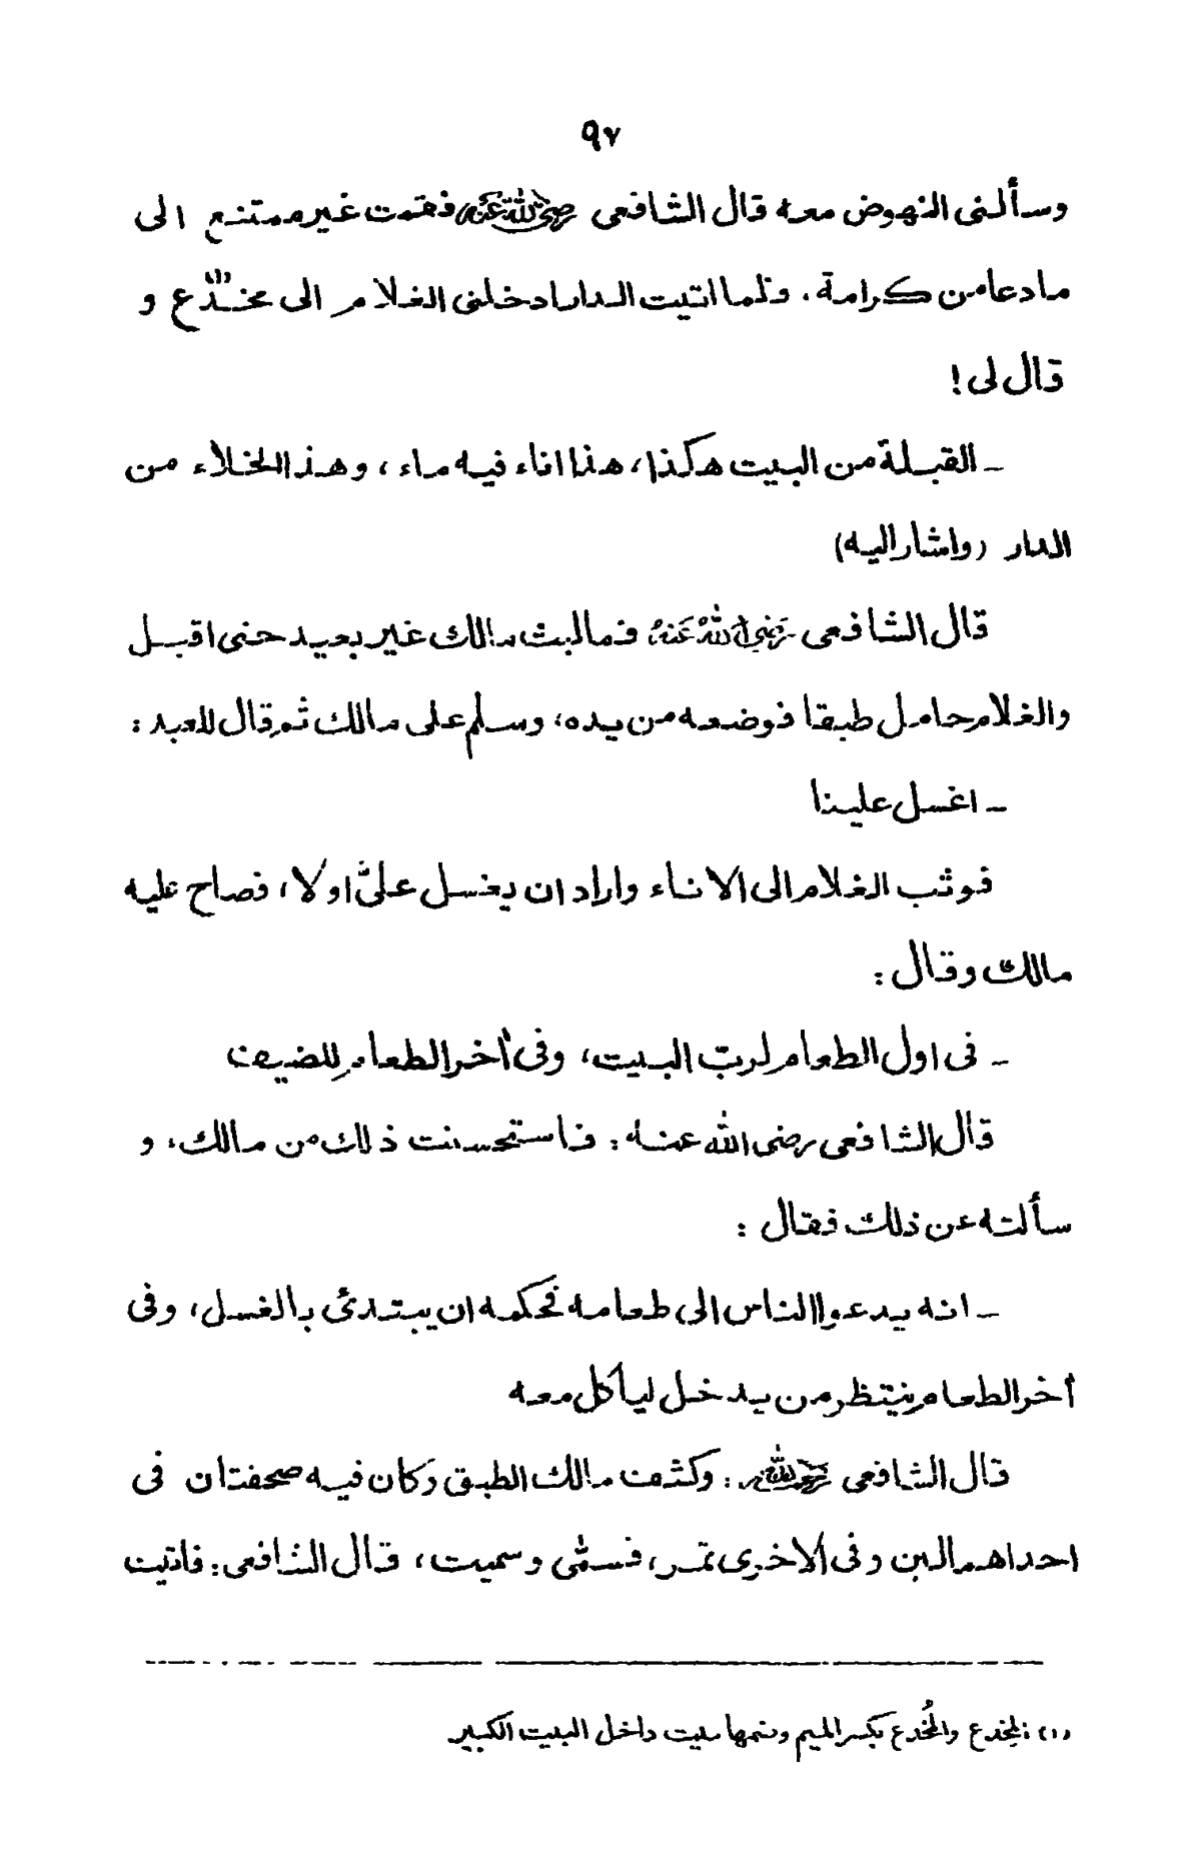 ٩٧
وسألنى النهوض معه قال الشافعى رضی اللہ عنہ فقمت غير ممتنع الى
ما دعا من كرامة . فلما اتيت الدار ادخلنى الغلام الى مخدع (١) و
قال لى !
ـ القبلة من البيت هكذا، هذا اناء فيه ماء ، وهذا الخلاء من
الدار (واشار اليه)
قال الشافعى رَضِىَ اللهُ عَنهُ فما لبث مالك غير بعيد حتى اقبل
والغلام حامل طبقا فوضعه من يده، وسلم على مالك ثم قال للعبد :
ـ اغسل علينا
فوثب الغلام الى الاناء واراد ان يغسل علىَّ اولا، فصاح عليه
مالك وقال :
ـ فى اول الطعام لربّ البيت، وفى أخر الطعام للضيف
قال الشافعى رضى الله عنه : فاستحسنت ذلك من مالك، و
سألته عن ذلك فقال :
ـ انه يدعوا الناس الى طعامه فحكمه ان يبتدئ بالغسل، وفى
أخر الطعام ينتظر من يدخل ليأكل معه
قال الشافعى : وكشف مالك الطبق وكان فيه صحفتان فى
احداهما لبن وفى الاخرى تمر، فسمّى وسميت، قال الشافعى: فاتيت
(١) المِخدع والمُخدع بكسر الميم وضمها بيت داخل البيت الكبير